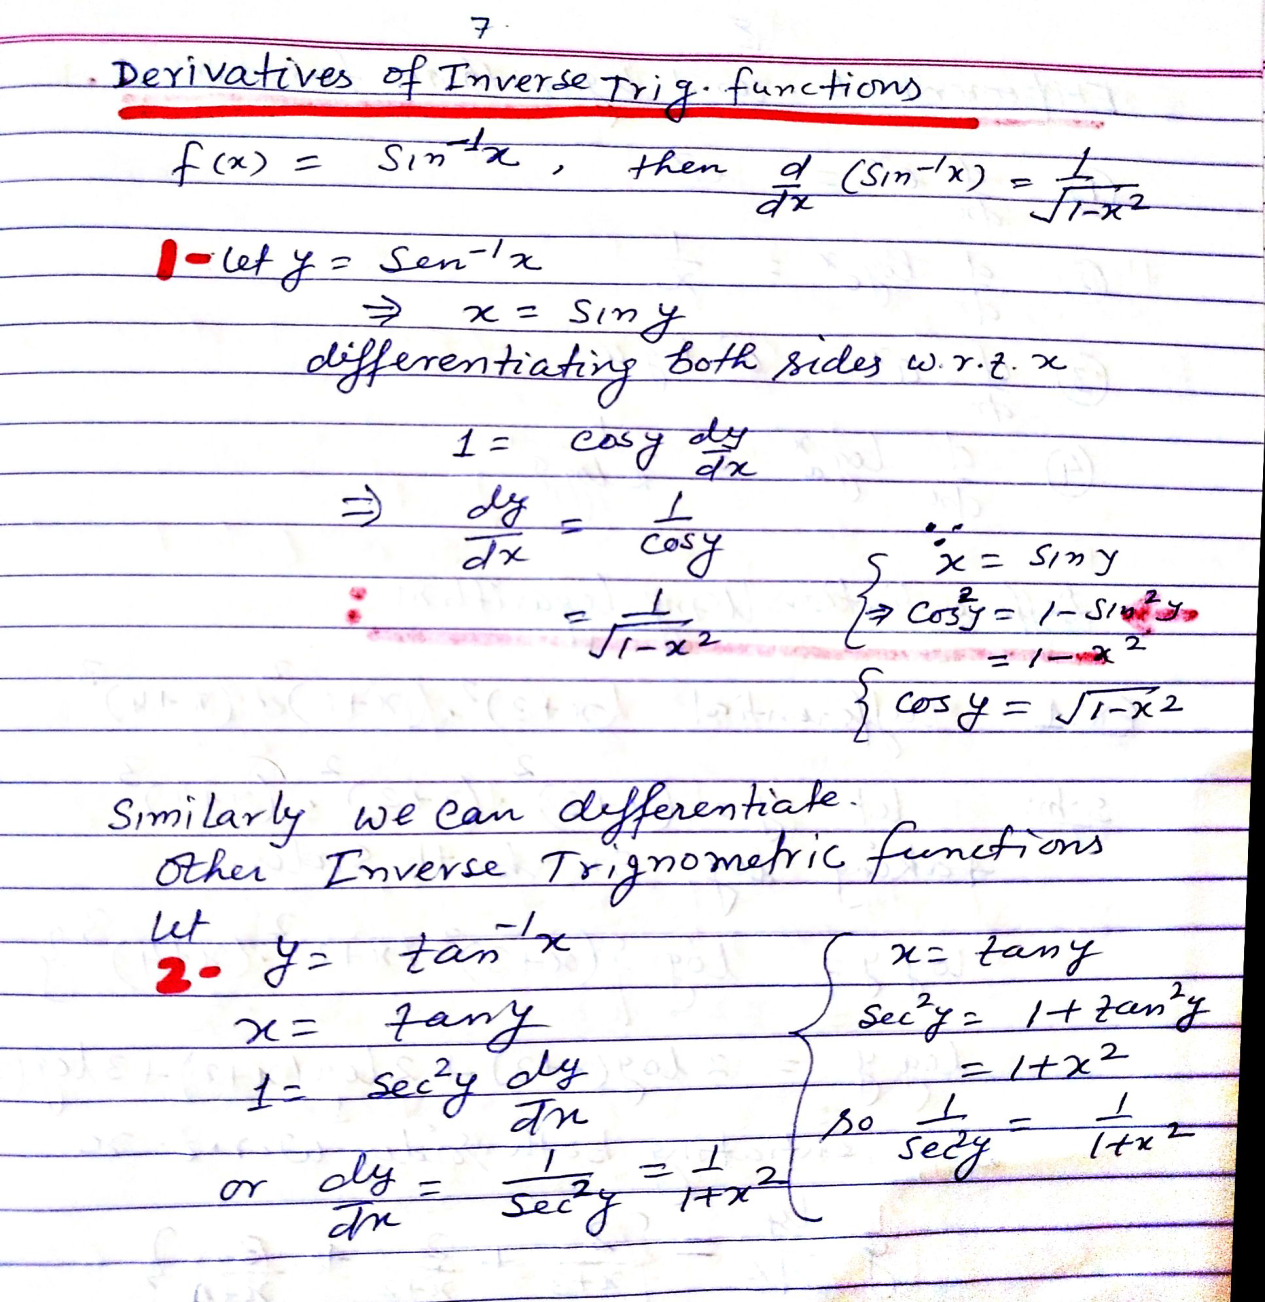 7.
Derivatives of Inverse Trig. functions
f(x) = Sin⁻¹x , then d/dx (Sin⁻¹x) = 1/√1-x²
1- let y = Sen⁻¹x
⇒ x = Sin y
differentiating both sides w.r.t. x
1 = cosy dy/dx
⇒ dy/dx = 1/cosy
∵ x = Sin y
= 1/√1-x²
⇒ Cos²y = 1 - Sin²y
= 1 - x²
cos y = √1-x²
Similarly we can differentiate.
Other Inverse Trignometric functions
Let
2- y = tan⁻¹x
x = tany
1 = Sec²y dy/dx
or dy/dx = 1/Sec²y = 1/1+x²
x = tany
Sec²y = 1 + tan²y
= 1+x²
so 1/Sec²y = 1/1+x²